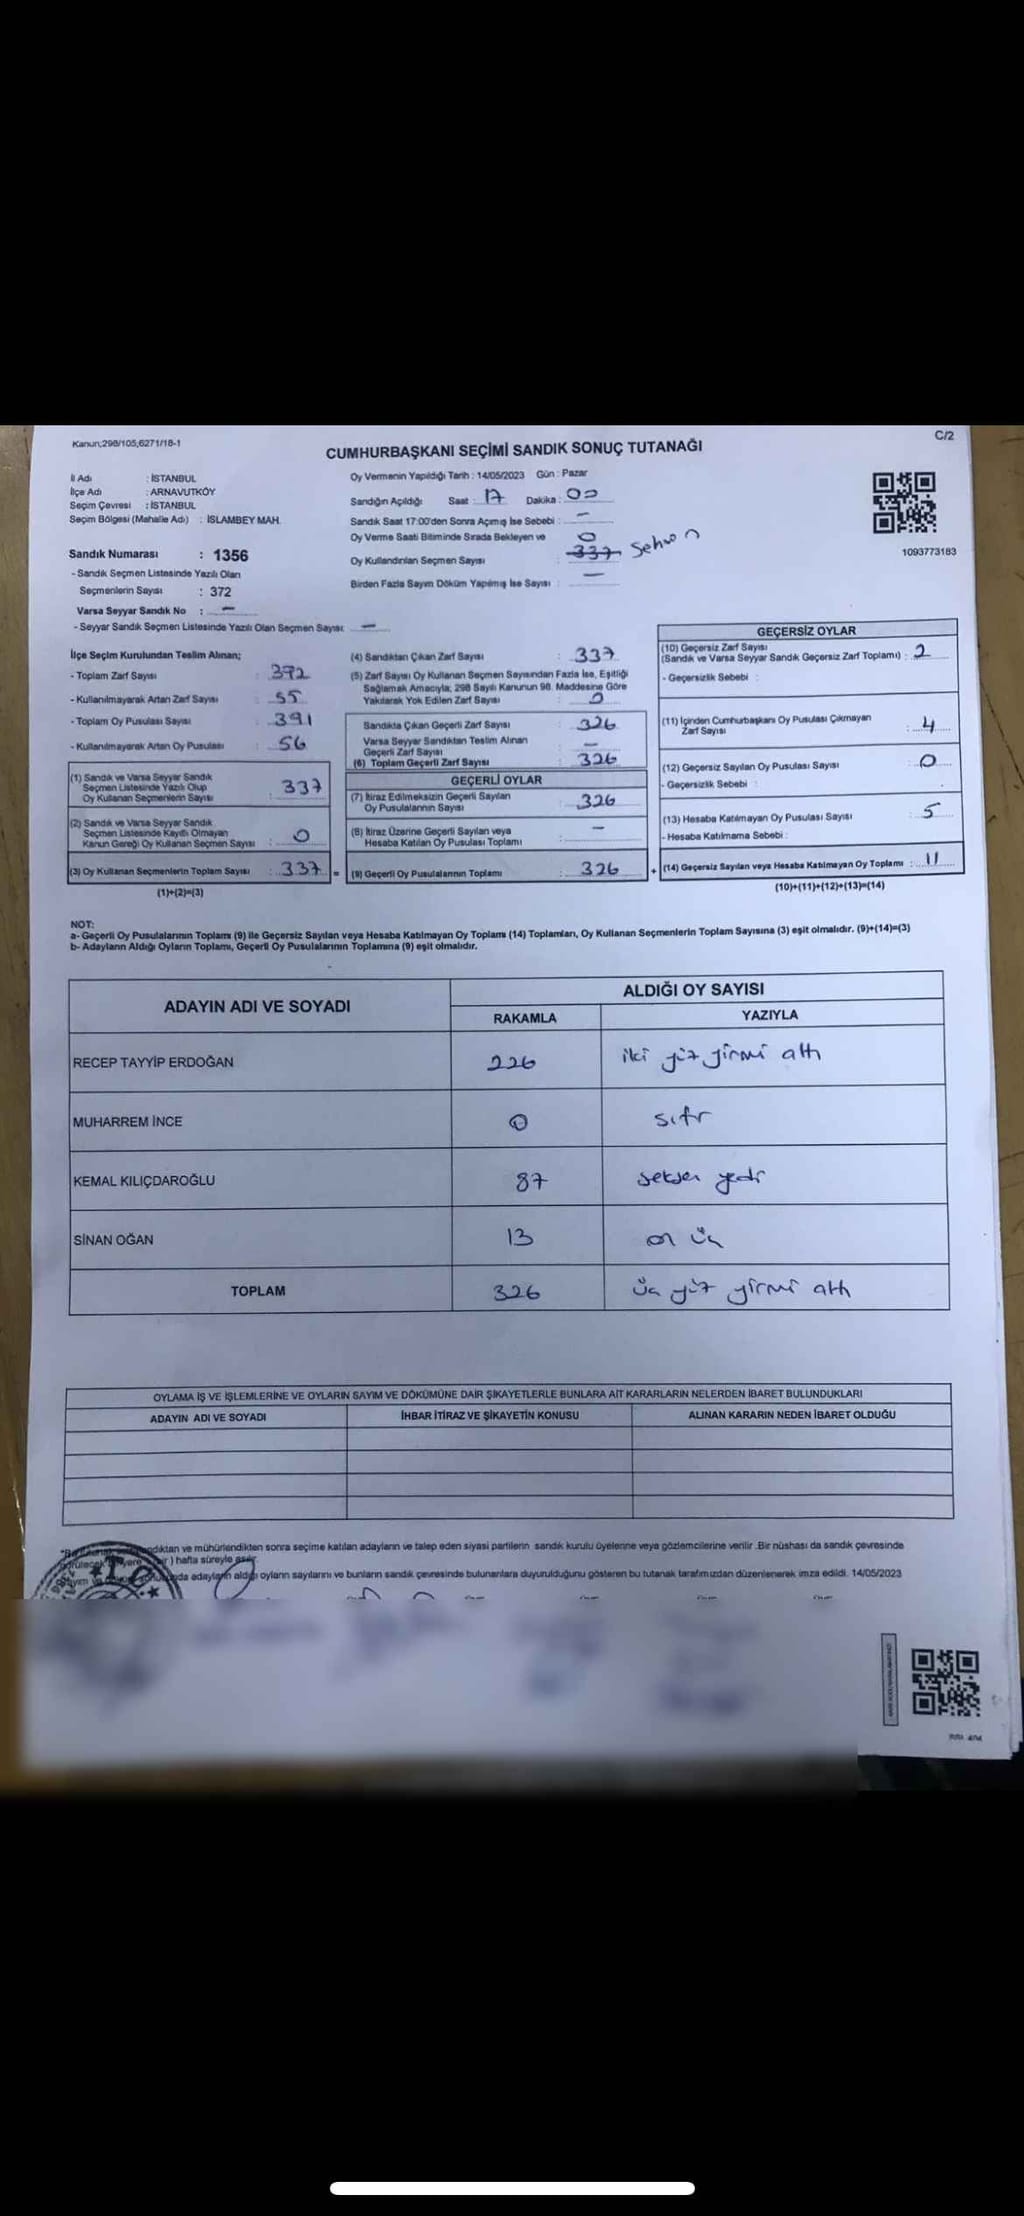 Kanun;298/105;6271/18-1
C/2
CUMHURBAŞKANI SEÇİMİ SANDIK SONUÇ TUTANAĞI
İl Adı : İSTANBUL
İlçe Adı : ARNAVUTKÖY
Seçim Çevresi : İSTANBUL
Seçim Bölgesi (Mahalle Adı) : İSLAMBEY MAH.
Sandık Numarası : 1356
- Sandık Seçmen Listesinde Yazılı Olan
Seçmenlerin Sayısı : 372
Varsa Seyyar Sandık No : —
- Seyyar Sandık Seçmen Listesinde Yazılı Olan Seçmen Sayısı: —
Oy Vermenin Yapıldığı Tarih : 14/05/2023 Gün : Pazar
Sandığın Açıldığı Saat : 17 Dakika : 00
Sandık Saat 17:00'den Sonra Açımış İse Sebebi : —
Oy Verme Saati Bitiminde Sırada Bekleyen ve
Oy Kullandırılan Seçmen Sayısı : 0 337 Sehven
Birden Fazla Sayım Döküm Yapılmış İse Sayısı : —
1093773183
İlçe Seçim Kurulundan Teslim Alınan;
- Toplam Zarf Sayısı : 392
- Kullanılmayarak Artan Zarf Sayısı : 55
- Toplam Oy Pusulası Sayısı : 391
- Kullanılmayarak Artan Oy Pusulası : 56
(1) Sandık ve Varsa Seyyar Sandık
Seçmen Listesinde Yazılı Olup
Oy Kullanan Seçmenlerin Sayısı : 337
(2) Sandık ve Varsa Seyyar Sandık
Seçmen Listesinde Kayıtlı Olmayan
Kanun Gereği Oy Kullanan Seçmen Sayısı : 0
(3) Oy Kullanan Seçmenlerin Toplam Sayısı : 337 =
(1)+(2)=(3)
(4) Sandıktan Çıkan Zarf Sayısı : 337
(5) Zarf Sayısı Oy Kullanan Seçmen Sayısından Fazla İse, Eşitliği
Sağlamak Amacıyla; 298 Sayılı Kanunun 98. Maddesine Göre
Yakılarak Yok Edilen Zarf Sayısı : 0
Sandıkta Çıkan Geçerli Zarf Sayısı : 326
Varsa Seyyar Sandıktan Teslim Alınan
Geçerli Zarf Sayısı : —
(6) Toplam Geçerli Zarf Sayısı : 326
GEÇERLİ OYLAR
(7) İtiraz Edilmeksizin Geçerli Sayılan
Oy Pusulalarının Sayısı : 326
(8) İtiraz Üzerine Geçerli Sayılan veya
Hesaba Katılan Oy Pusulası Toplamı : —
(9) Geçerli Oy Pusulalarının Toplamı : 326 +
GEÇERSİZ OYLAR
(10) Geçersiz Zarf Sayısı
(Sandık ve Varsa Seyyar Sandık Geçersiz Zarf Toplamı) : 2
- Geçersizlik Sebebi :
(11) İçinden Cumhurbaşkanı Oy Pusulası Çıkmayan
Zarf Sayısı : 4
(12) Geçersiz Sayılan Oy Pusulası Sayısı : 0
- Geçersizlik Sebebi :
(13) Hesaba Katılmayan Oy Pusulası Sayısı : 5
- Hesaba Katılmama Sebebi :
(14) Geçersiz Sayılan veya Hesaba Katılmayan Oy Toplamı : 11
(10)+(11)+(12)+(13)=(14)
NOT:
a- Geçerli Oy Pusulalarının Toplamı (9) ile Geçersiz Sayılan veya Hesaba Katılmayan Oy Toplamı (14) Toplamları, Oy Kullanan Seçmenlerin Toplam Sayısına (3) eşit olmalıdır. (9)+(14)=(3)
b- Adayların Aldığı Oyların Toplamı, Geçerli Oy Pusulalarının Toplamına (9) eşit olmalıdır.
ADAYIN ADI VE SOYADI
ALDIĞI OY SAYISI
RAKAMLA YAZIYLA
RECEP TAYYİP ERDOĞAN 226 iki yüz yirmi altı
MUHARREM İNCE 0 sıfır
KEMAL KILIÇDAROĞLU 87 seksen yedi
SİNAN OĞAN 13 on üç
TOPLAM 326 üç yüz yirmi altı
OYLAMA İŞ VE İŞLEMLERİNE VE OYLARIN SAYIM VE DÖKÜMÜNE DAİR ŞİKAYETLERLE BUNLARA AİT KARARLARIN NELERDEN İBARET BULUNDUKLARI
ADAYIN ADI VE SOYADI İHBAR İTİRAZ VE ŞİKAYETİN KONUSU ALINAN KARARIN NEDEN İBARET OLDUĞU
ve mühürlendikten sonra seçime katılan adayların ve talep eden siyasi partilerin sandık kurulu üyelerine veya gözlemcilerine verilir .Bir nüshası da sandık çevresinde
) hafta süreyle asılır.
adayların aldığı oyların sayılarını ve bunların sandık çevresinde bulunanlara duyurulduğunu gösteren bu tutanak tarafımızdan düzenlenerek imza edildi. 14/05/2023